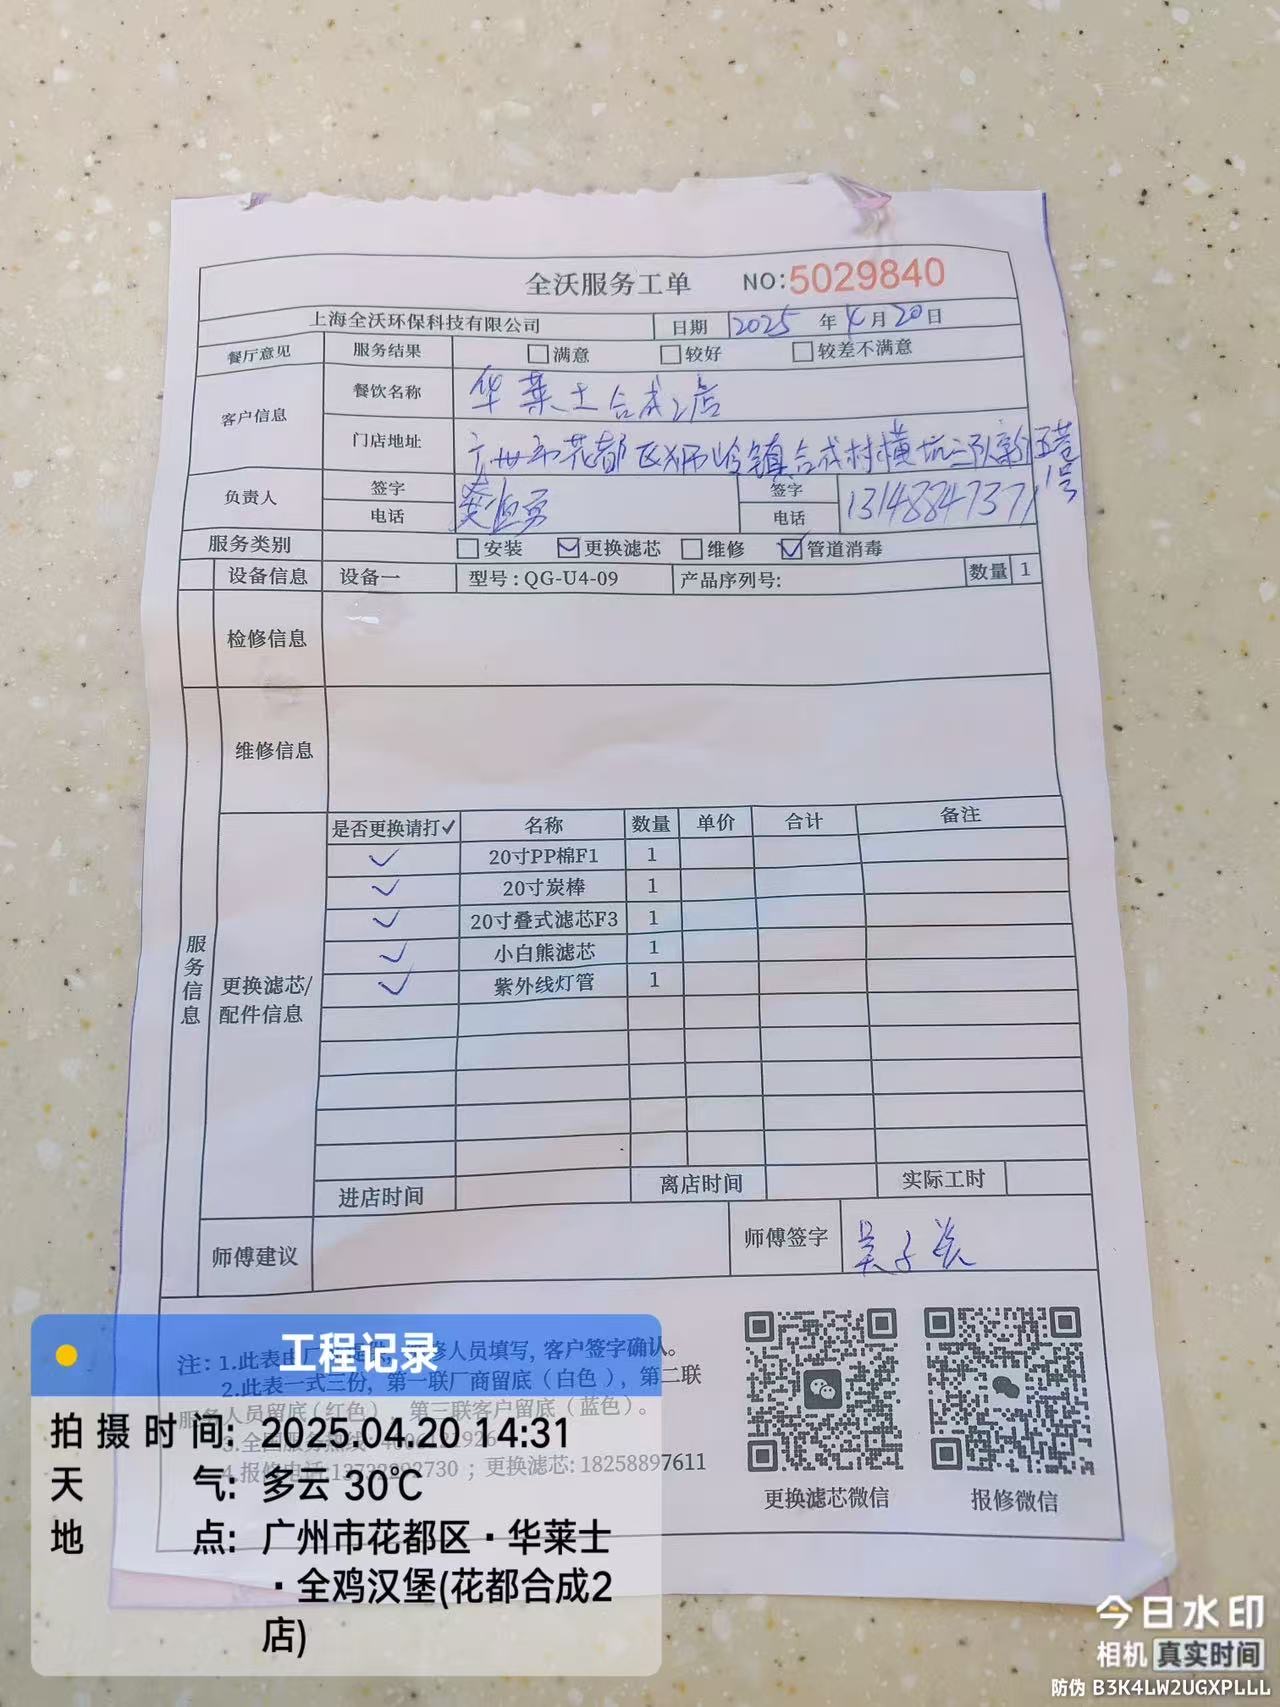 全沃服务工单 NO:5029840
上海全沃环保科技有限公司 日期 2025 年 4 月 20 日
餐厅意见 服务结果 满意 较好 较差不满意
客户信息 餐饮名称 华莱士合成2店
门店地址 广州市花都区狮岭镇合成村横坑三队新五巷1号
负责人 签字 签字
电话 电话 13148847371
服务类别 安装 更换滤芯 维修 管道消毒
设备信息 设备一 型号:QG-U4-09 产品序列号: 数量 1
检修信息
维修信息
服务信息
更换滤芯/配件信息
是否更换请打✓ 名称 数量 单价 合计 备注
✓ 20寸PP棉F1 1
✓ 20寸炭棒 1
✓ 20寸叠式滤芯F3 1
✓ 小白熊滤芯 1
✓ 紫外线灯管 1
进店时间 离店时间 实际工时
师傅建议 师傅签字
注: 1.此表由 修人员填写, 客户签字确认。
2.此表一式三份, 第一联厂商留底(白色), 第二联
服务人员留底(红色) 第三联客户留底(蓝色)。
3.全国服务热线:
4.报修电话: ; 更换滤芯: 18258897611
更换滤芯微信 报修微信
工程记录
拍摄时间: 2025.04.20 14:31
天气: 多云 30℃
地点: 广州市花都区·华莱士
·全鸡汉堡(花都合成2
店)
今日水印
相机 真实时间
防伪 B3K4LW2UGXPLLL